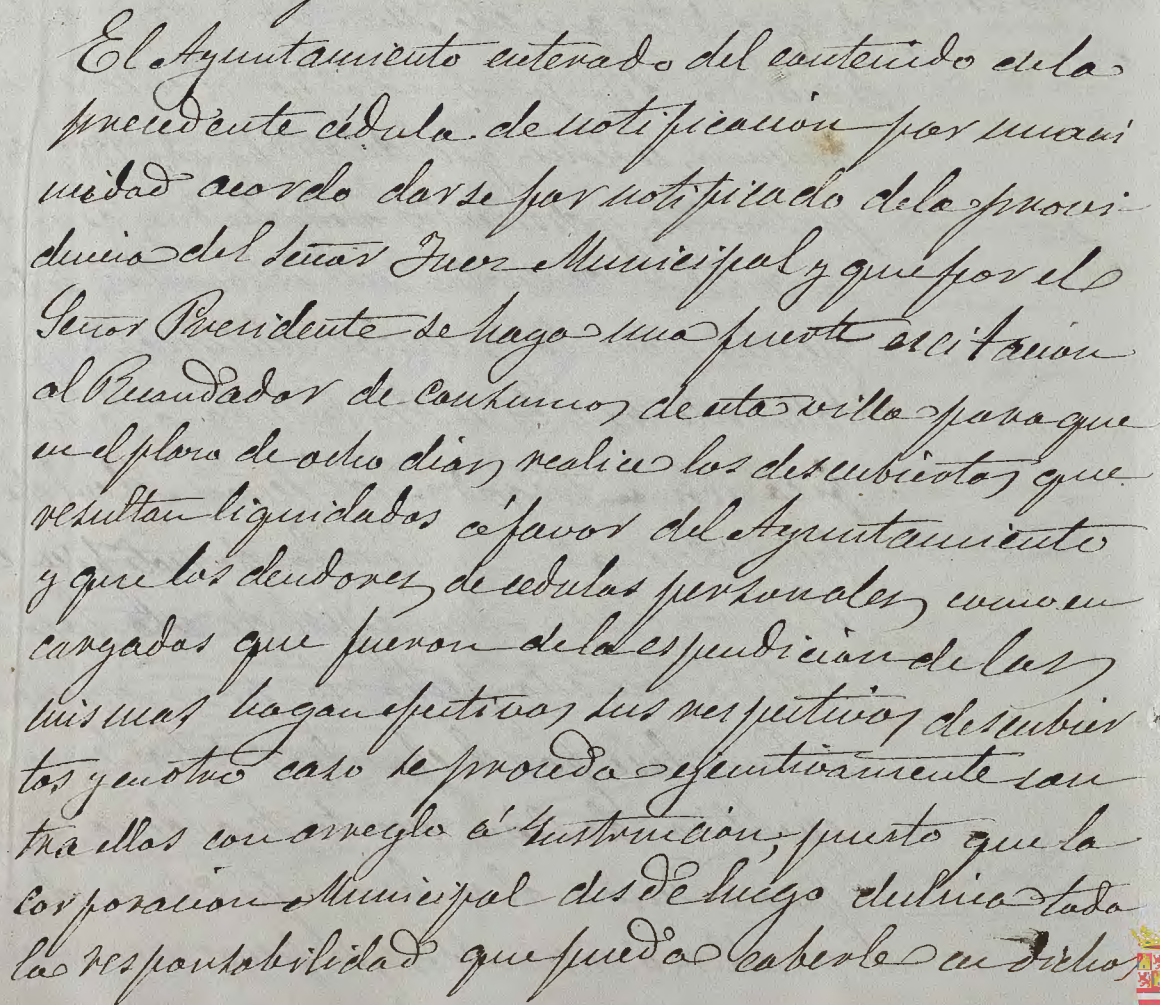 El Ayuntamiento enterado del contenido dela
precedente cédula de notificacion por unani
midad acordo darse por notificado dela provi-
dencia del Señor Juez Municipal y que por el
Señor Presidente se haga una fuerte escitacion
al Recaudador de consumos de esta villa para que
en el plazo de ocho dias realice los descubiertos que
resultan liquidados á favor del Ayuntamiento
y que los deudores de cedulas personales como en
cargados que fueron dela espendicion de las
mismas hagan efectivos sus respectivos descubier
tos y en otro caso se proceda ejecutivamente con
tra ellos con arreglo á Instruccion, puesto que la
corporacion Municipal desde luego declina toda
la responsabilidad que pueda caberle en dichos